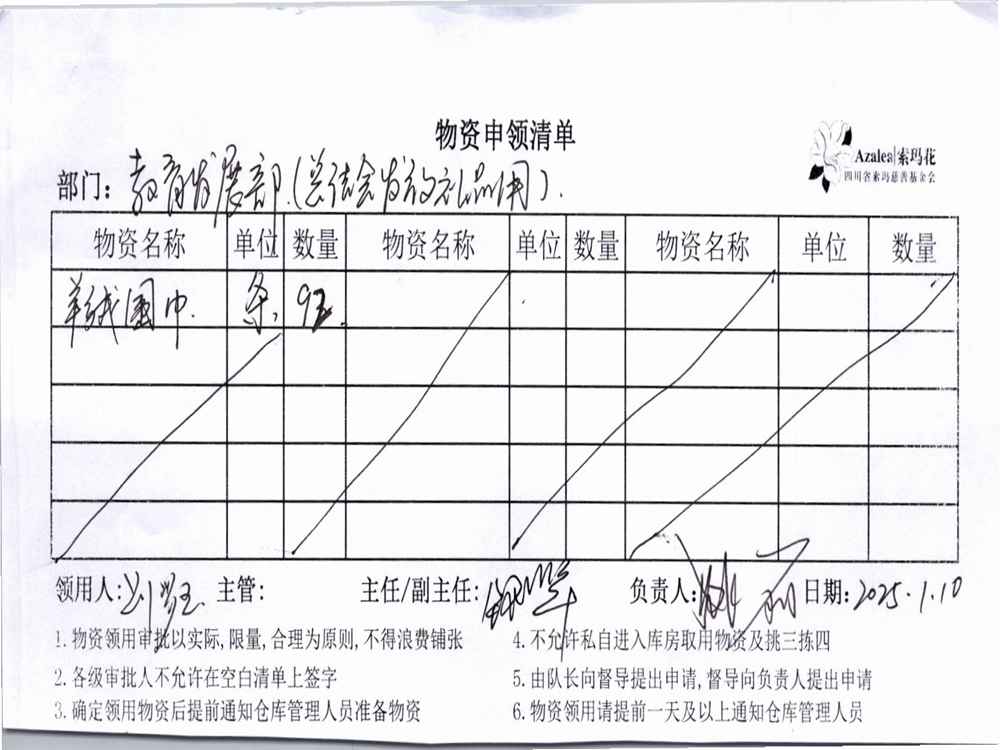 物资申领清单
Azalea 索玛花
四川省索玛慈善基金会
部门: 教育发展部(总结会发放礼品用).
物资名称 单位 数量 物资名称 单位 数量 物资名称 单位 数量
羊绒围巾. 条.
领用人: 主管: 主任/副主任: 负责人: 日期: 2025.1.10
1.物资领用审批以实际,限量,合理为原则,不得浪费铺张
4.不允许私自进入库房取用物资及挑三拣四
2.各级审批人不允许在空白清单上签字
5.由队长向督导提出申请,督导向负责人提出申请
3.确定领用物资后提前通知仓库管理人员准备物资
6.物资领用请提前一天及以上通知仓库管理人员